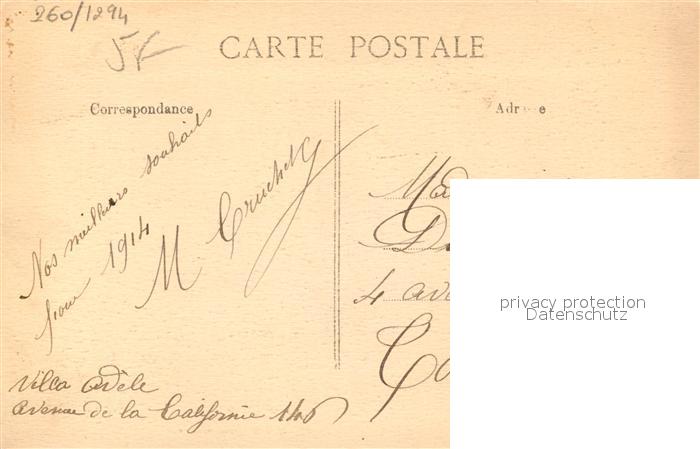 260/1294
5F
CARTE POSTALE
Correspondance
Adr e
Nos meilleurs souhaits
pour 1914
M Cruchet
Villa Adèle
avenue de la Californie 146
Mad
D
4 av
privacy protection
Datenschutz